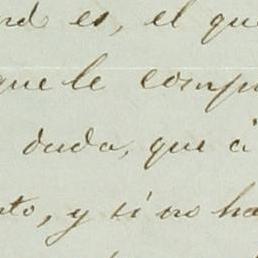 es, el que
que le comp
duda, que á
to, y si no ha